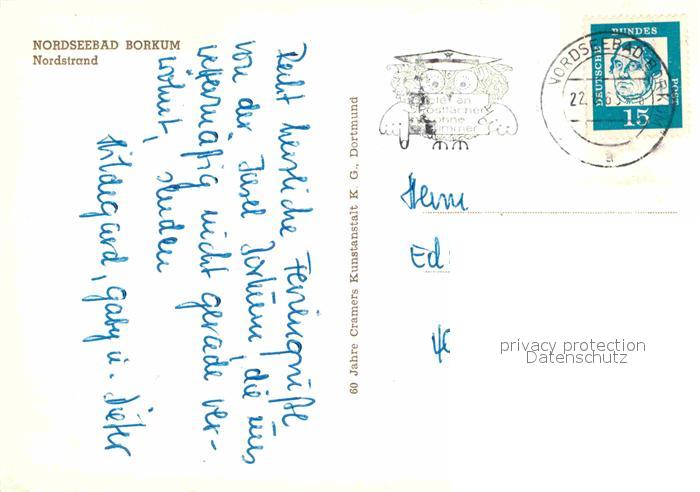 NORDSEEBAD BORKUM
Nordstrand
Recht herzliche Feriengrüße
von der Insel Borkum, die uns
wettermäßig nicht gerade ver-
wöhnt, senden
Hildegard, Gaby u. Dieter
60 Jahre Cramers Kunstanstalt K. G., Dortmund
an
Postfächer
ohne
Nummer
NORDSEEBAD BORKUM
22.
a
DEUTSCHE BUNDESPOST
15
Herrn
Ed
privacy protection
Datenschutz